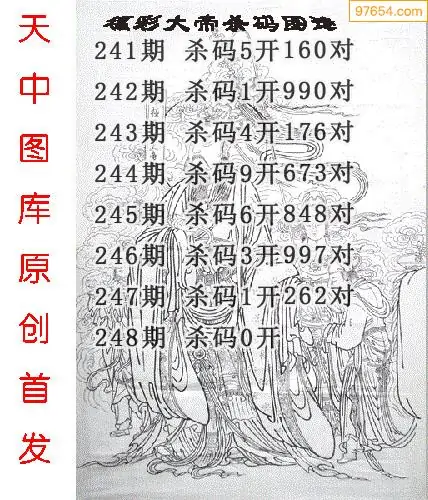 97654.com
福彩大帝杀码图谜
241期 杀码5开160对
242期 杀码1开990对
243期 杀码4开176对
244期 杀码9开673对
245期 杀码6开848对
246期 杀码3开997对
247期 杀码1开262对
248期 杀码0开
天中图库原创首发